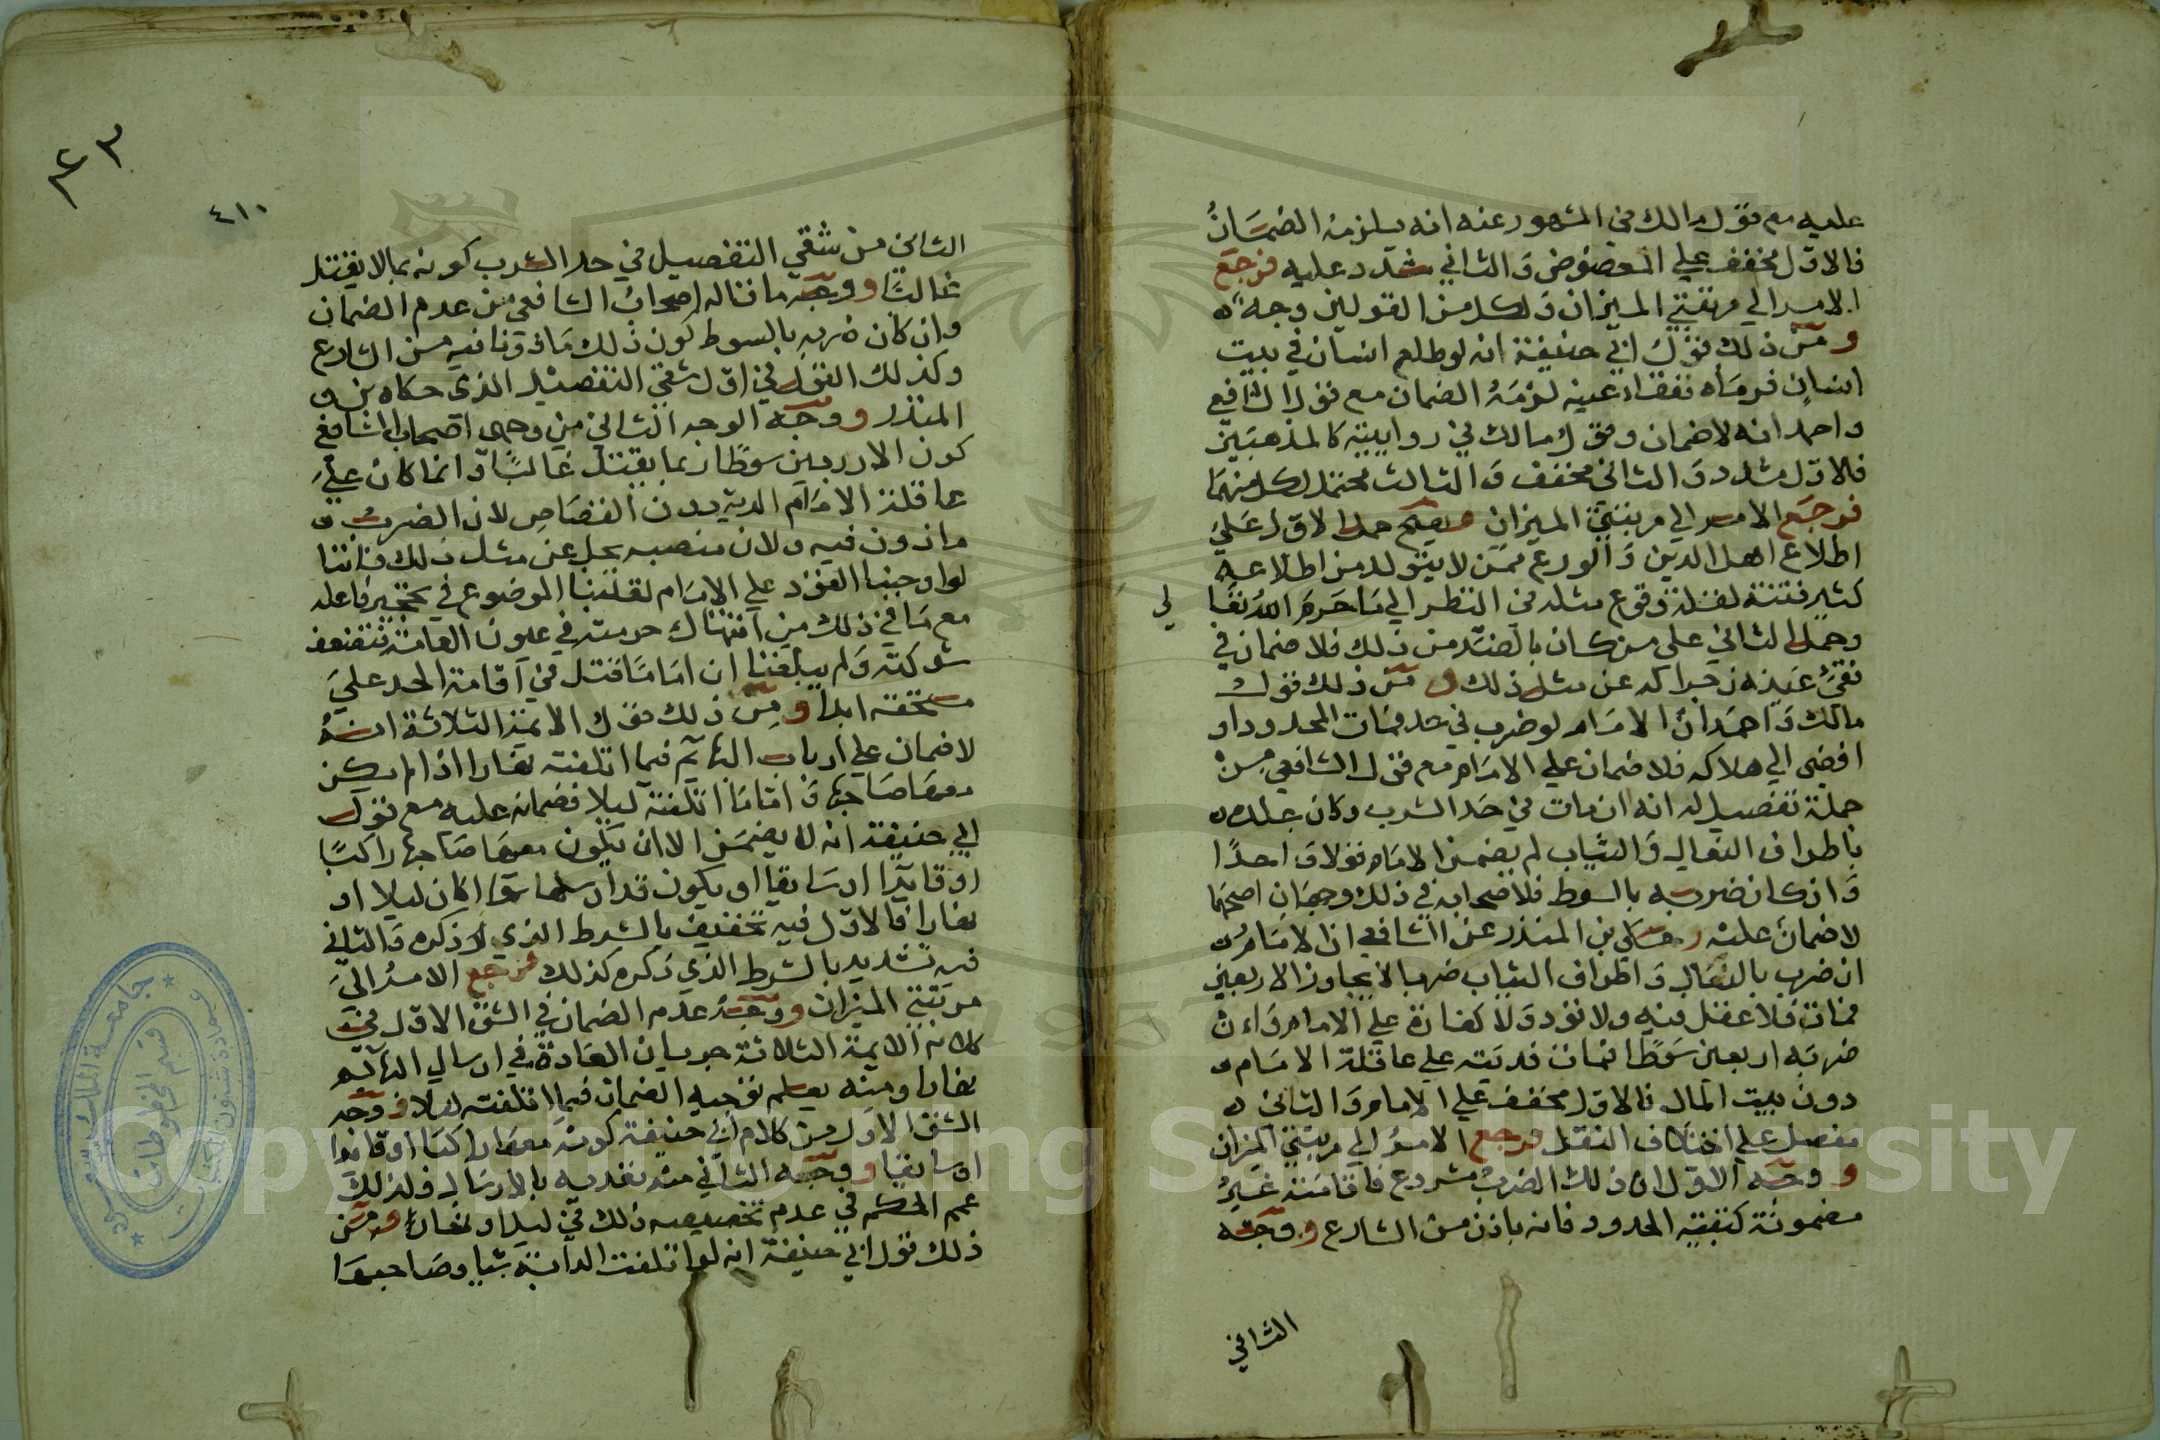 عليه مع قول مالك في المشهور عنه انه يلزمه الضمان
فالاول مخفف علي المعضوض والثاني مشدد عليه فرجع
الامر الي مرتبتي الميزان ولكل من القولين وجه
ومن ذلك قول ابي حنيفة انه لو طلع انسان في بيت
انسان فرماه ففقا عينه لزمه الضمان مع قول الشافعي
واحمد انه لا ضمان وقول مالك في روايتيه كالمذهبين
فالاول مشدد والثاني مخفف والثالث محتمل لكل منهما
فرجع الامر الي مرتبتي الميزان ويصح حمل الاول علي
اطلاع اهل الدين والورع ممن لا يتولد من اطلاعه
كثير فتنة لقلة وقوع مثله في النظر الي ما حرم الله تعا
لي
وحمل الثاني علي من كان بالضد من ذلك فلا ضمان في
فقئ عينه زجرا له عن مثل ذلك ومن ذلك قول
مالك واحمد ان الامام لو ضرب في حد فمات المحدود او
افضي الي هلاكه فلا ضمان علي الامام مع قول الشافعي من
جملة تفصيل له انه ان مات في حد الشرب وكان جلده
باطراف النعال والثياب لم يضمن الامام قولا واحدا
وان كان ضربه بالسوط فلاصحابه في ذلك وجهان اصحهما
لا ضمان عليه وحكي بن المنذر عن الشافعي ان الامام
ان ضرب بالنعال واطراف الثياب ضربا لا يجاوز الاربعين
فمات فلا عقل فيه ولا قود ولا كفارة علي الامام وان
ضربه اربعين سوطا فمات فديته علي عاقلة الامام
دون بيت المال فالاول مخفف علي الامام والثاني
مفصل علي اختلاف النقل فرجع الامر الي مرتبتي الميزان
ووجه الاول ان ذلك الضرب مشروع فاقامته غير
مضمونة كبقية الحدود فانه باذن من الشارع ووجه
الثاني
٤٣
٤١٠
الثاني من شقي التفصيل في حد الشرب كونه بما لا يقتل
غالبا ووجه ما قاله اصحاب الشافعي من عدم الضمان
وان كان ضربه بالسوط كون ذلك ماذونا فيه من الشارع
وكذلك القول في اول شقي التفصيل الذي حكاه بن
المنذر ووجه الوجه الثاني من وجهي اصحاب الشافعي
كون الاربعين سوطا ربما يقتل غالبا وانما كان علي
عاقلة الامام الدية بدون القصاص لان الضرب
ماذون فيه ولان منصبه يجل عن مثل ذلك فاننا
لو اوجبنا القود علي الامام لقلبنا الموضوع في فاعله
مع ما في ذلك من انتهاك حرمته في عيون العامة فتضعف
شوكته ولم يبلغنا ان اماما قتل في اقامة الحد علي
مستحقه ابدا ومن ذلك قول الائمة الثلاثة انه
لا ضمان علي ارباب البهائم فيما اتلفته نهارا اذا لم يكن
معها صاحبها واما ما اتلفته ليلا فضمانه عليه مع قول
ابي حنيفة انه لا يضمن الا ان يكون معها صاحبها راكبا
او قائدا او سائقا او يكون قد ارسلها سوا كان ليلا او
نهارا فالاول فيه تخفيف بالشرط الذي ذكره والثاني
فيه تشديد بالشرط الذي ذكره كذلك فرجع الامر الي
مرتبتي الميزان ووجه عدم الضمان في الشق الاول من
كلام الائمة الثلاثة جريان العادة في ارسال البهائم
نهارا ومنه يعلم توجيه الضمان فيما اتلفته ليلا ووجه
الشق الاول من كلام ابي حنيفة كونه معها راكبا او قائدا
او سائقا ووجه الثاني منه تعديه بالارسال ولذلك
عمم الحكم في عدم تخصيصه ذلك في ليل او نهار ومن
ذلك قول ابي حنيفة انه لو اتلفت الدابة شيا وصاحبها
جامعة الملك سعود
عمادة شئون المكتبات
قسم المخطوطات
Copyright © King Saud University
1957